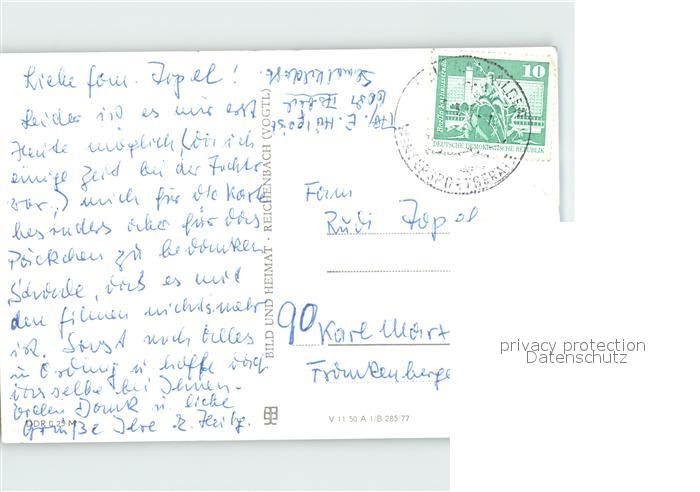 Liebe Fam. Zopel!
Leider ist es mir erst
Heute möglich (da ich
einige Zeit bei der Tochter
war,) mich für die Karte
besonders aber für das
Päckchen zu bedanken
Schade, daß es mit
den Filmen nichts mehr
ist. Sonst noch alles
in Ordnung u. hoffe doch
dasselbe bei Ihnen.
Vielen Dank u. liebe
Grüße Ihre
DDR 0,25 M
BILD UND HEIMAT · REICHENBACH (VOGTL)
10
DEUTSCHE DEMOKRATISCHE REPUBLIK
Fam
Rudi Zopel
90 Karl Marx
Frankenberge
V 11 50 A 1/B 285/77
privacy protection
Datenschutz